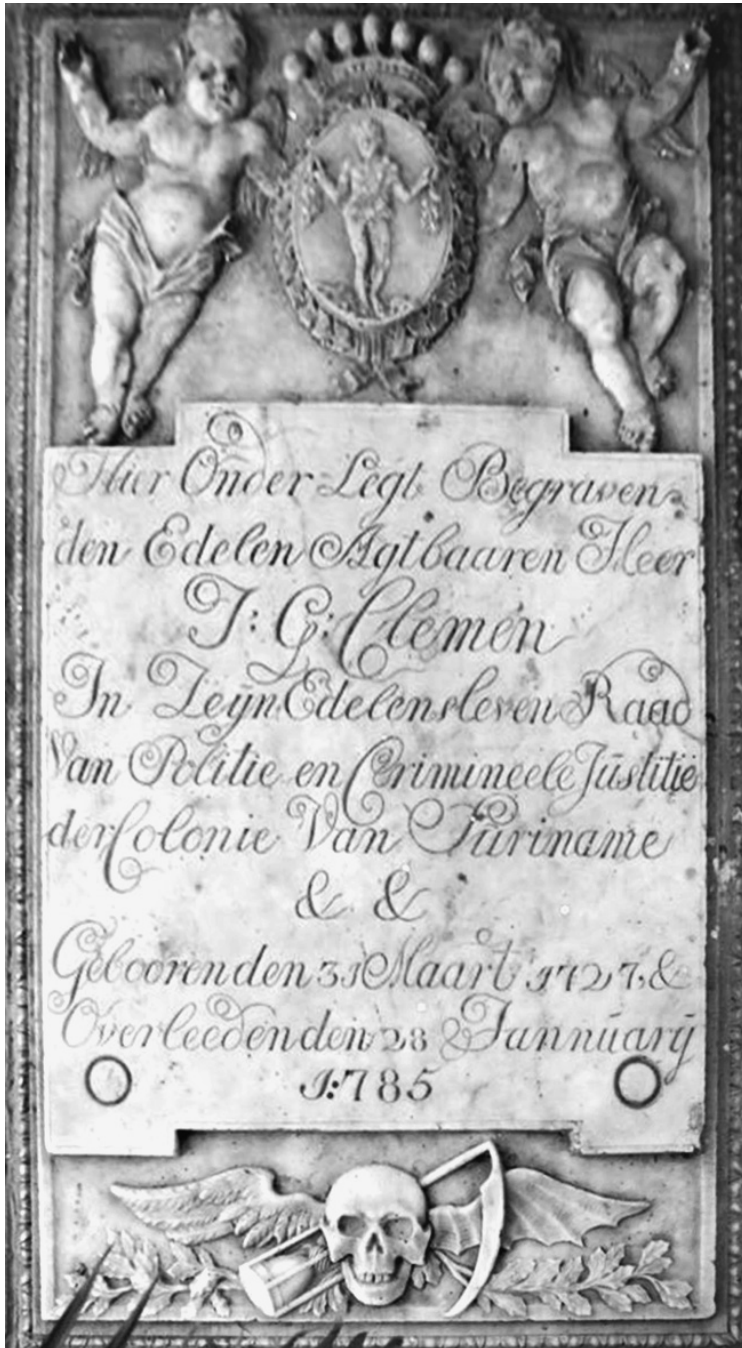 Hier Onder Legt Begraven
den Edelen Agtbaaren Heer
J: G: Clemen
In Zeijn Edelens leven Raad
Van Politie en Crimineele Justitie
der Colonie Van Suriname
& &
Gebooren den 31 Maart 1727. &
Overleeden den 28 Jannuarÿ
1:785